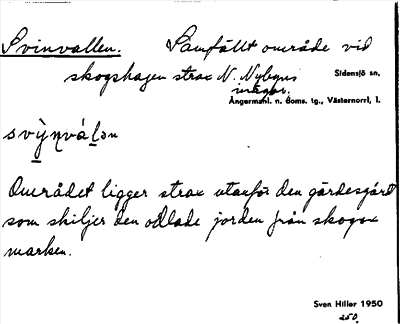 Svinvallen. Samfällt område vid
skogshagen strax N. Nybyns Sidensjö sn,
inägor.
Ångermanl. n. doms. tg., Västernorrl, l.
svỳn̥váḷən
Området ligger strax utanför den gärdesgård
som skiljer den odlade jorden från skogs
marken.
Sven Hiller 1950
250.